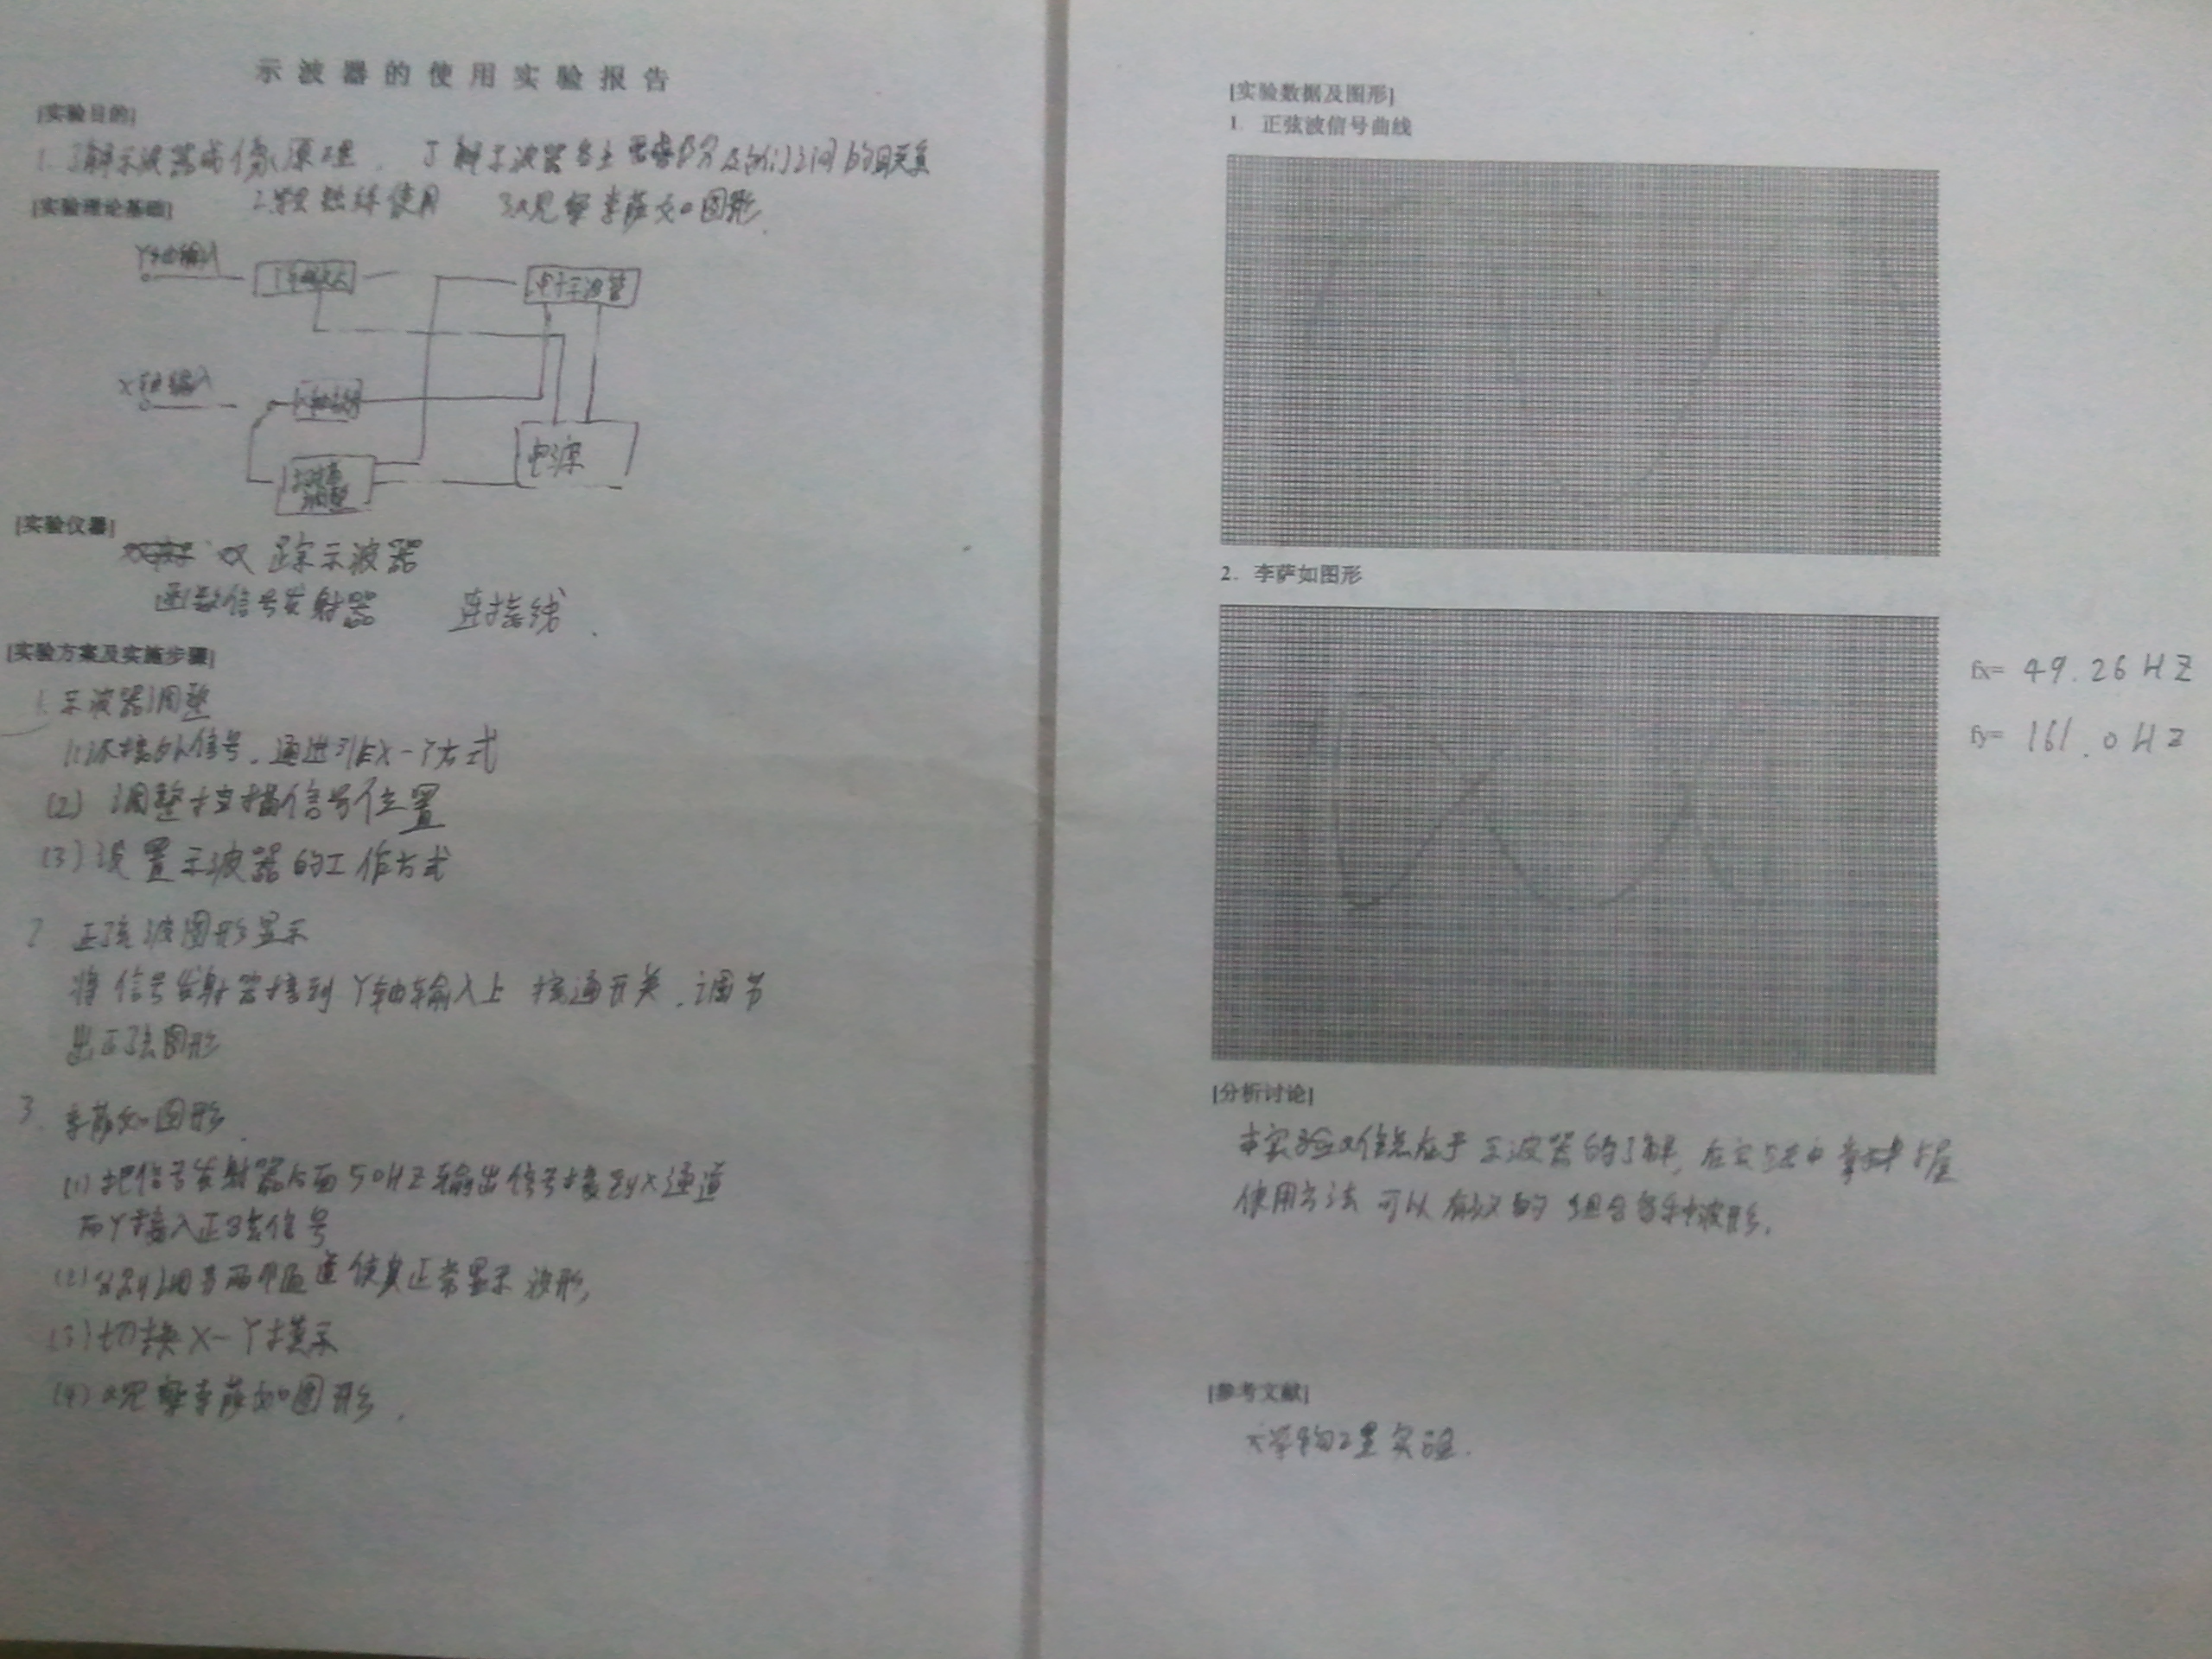 示波器的使用实验报告
[实验目的]
1.了解示波器成像原理，了解示波器各主要部分及它们之间的关系
[实验理论基础] 2.熟练使用 3.观察李萨如图形.
Y轴输入
示波管
X轴输入
电源
扫描
[实验仪器]
双踪示波器
函数信号发射器 连接线.
[实验方案及实施步骤]
1.示波器调整
(1)不接外信号，通进 X-Y方式
(2) 调整扫描信号位置
(3)设置示波器的工作方式
2 正弦波图形显示
将信号发射器接到Y轴输入上 接通开关，调节
出正弦图形
3. 李萨如图形.
(1)把信号发射器后面50HZ输出信号接到X通道
而Y接入正弦信号
(2)调节两个通道使其正常显示波形，
(3)切换X-Y模示
(4)观察李萨如图形.
[实验数据及图形]
1. 正弦波信号曲线
2. 李萨如图形
fx= 49.26HZ
fy= 161.0HZ
[分析讨论]
本实验 在于示波器的了解，在实验中 掌握
使用方法 可以 的组合各种波形.
[参考文献]
大学物理实验.